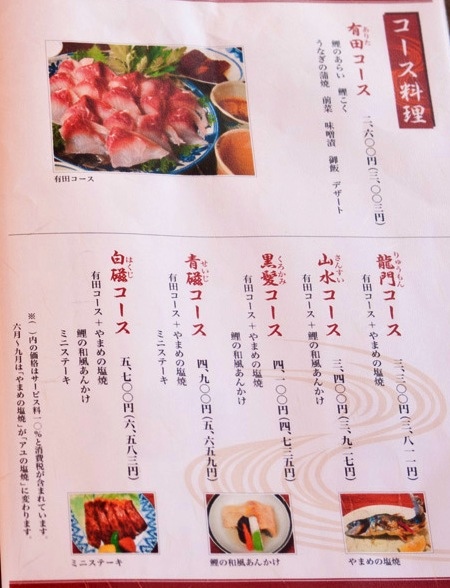 コース料理
有田コース
ありた
二、六〇〇円(三、〇〇三円)
鯉のあらい 鯉こく
うなぎの蒲焼 前菜 味噌漬 御飯 デザート
有田コース
龍門コース
りゅうもん
三、三〇〇円(三、八一一円)
有田コース+やまめの塩焼
山水コース
さんすい
三、四〇〇円(三、九二七円)
有田コース+鯉の和風あんかけ
黒髪コース
くろかみ
四、一〇〇円(四、七三五円)
有田コース+やまめの塩焼
鯉の和風あんかけ
青磁コース
せいじ
四、九〇〇円(五、六五九円)
有田コース+やまめの塩焼
ミニステーキ
白磁コース
はくじ
五、七〇〇円(六、五八三円)
有田コース+やまめの塩焼
鯉の和風あんかけ
ミニステーキ
※( )内の価格はサービス料一〇%と消費税が含まれています。
六月〜九月は「やまめの塩焼」が「アユの塩焼」に変わります。
ミニステーキ
鯉の和風あんかけ
やまめの塩焼